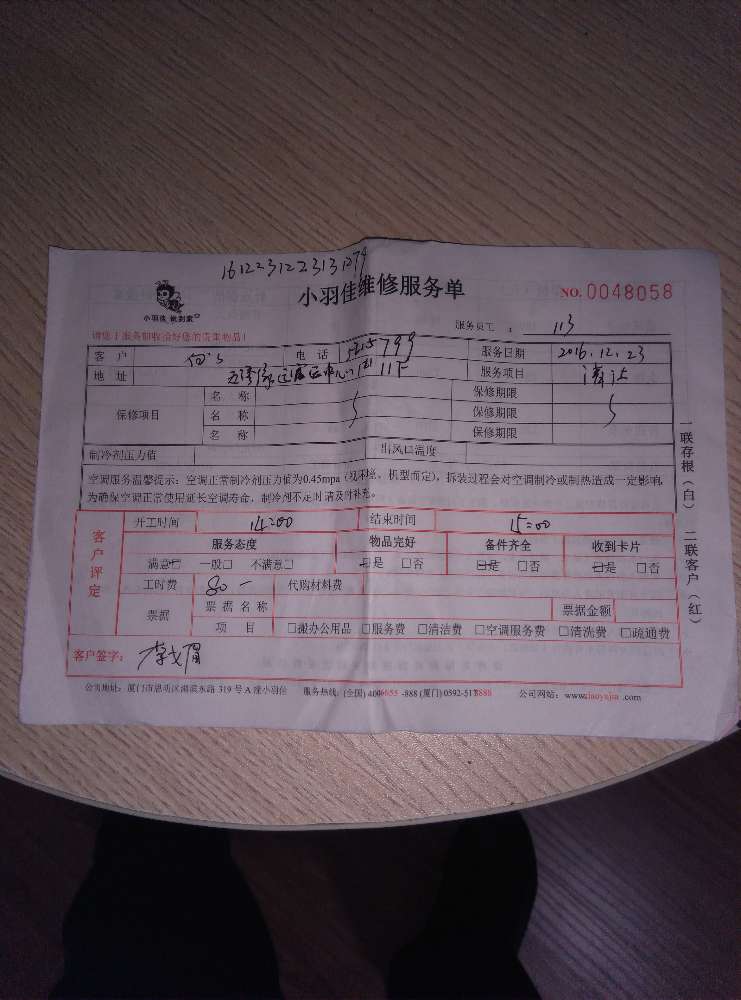 1612231223131279
小羽佳维修服务单
NO. 0048058
小羽佳 快到家
请您于服务前收拾好您的贵重物品!
服务员工 : 113
客户 电话 799 服务日期 2016.12.23
地址 11F 服务项目 清洁
保修项目 名称 保修期限
名称 保修期限
名称 保修期限
制冷剂压力值 出风口温度
空调服务温馨提示:空调正常制冷剂压力值为0.45mpa(视环境、机型而定),拆装过程会对空调制冷或制热造成一定影响,
为确保空调正常使用延长空调寿命,制冷剂不足时请及时补充。
客户评定
开工时间 14:00 结束时间 15:00
服务态度 物品完好 备件齐全 收到卡片
满意□ 一般□ 不满意□ □是 □否 □是 □否 □是 □否
工时费 80- 代购材料费
票据 票据名称 票据金额
项目 □搬办公用品 □服务费 □清洁费 □空调服务费 □清洗费 □疏通费
客户签字:
公司地址:厦门市思明区湖滨东路 319 号 A 座小羽佳 服务热线:(全国) 4006655-888 (厦门) 0592-5188888 公司网站:www.xiaoyujia.com
一联存根(白) 二联客户(红)